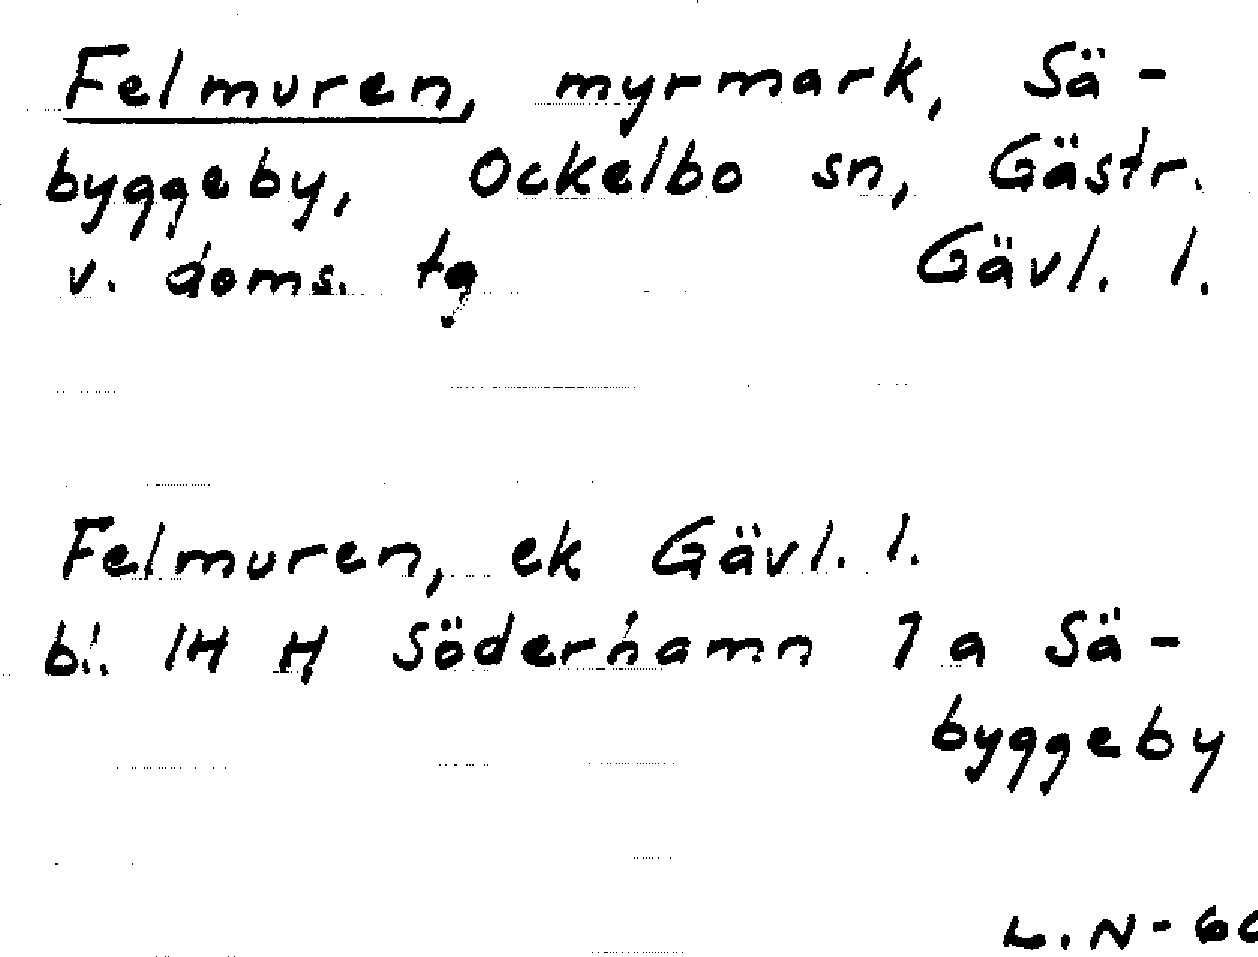 Felmuren, myrmark, Sä-
byggeby, Ockelbo sn, Gästr.
v. doms. tg Gävl. l.
Felmuren, ek Gävl. l.
bl. 14 H Söderhamn 7 a Sä-
byggeby
L.N-60